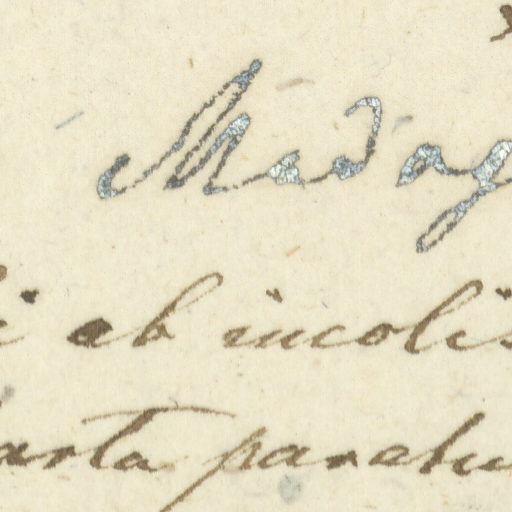 Madag
i ab incolis
arta paratu